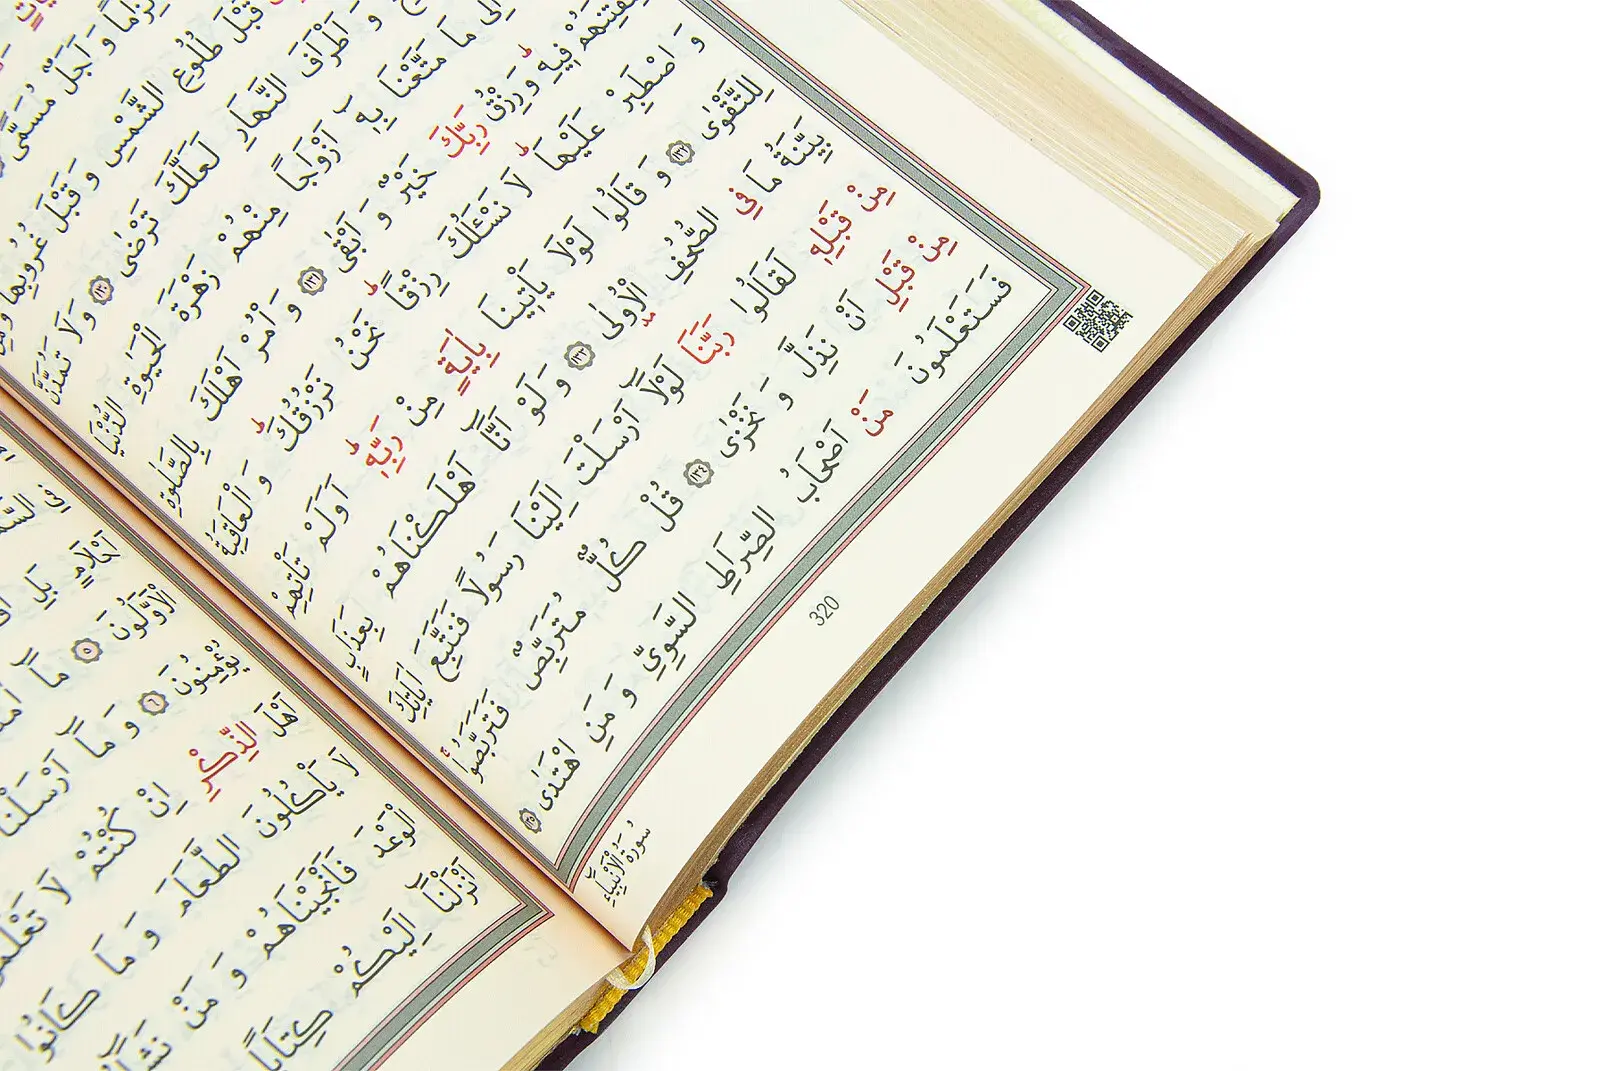 لِزَامًا وَ اَجَلٌ مُسَمًّى
قَبْلَ طُلُوعِ الشَّمْسِ وَ قَبْلَ غُرُوبِهَا وَ مِنْ
وَ اَطْرَافَ النَّهَارِ لَعَلَّكَ تَرْضٰى ١٣٠ وَلَا تَمُدَّنَّ
اِلٰى مَا مَتَّعْنَا بِهٖٓ اَزْوَاجًا مِنْهُمْ زَهْرَةَ الْحَيٰوةِ الدُّنْيَا
لِنَفْتِنَهُمْ فِيهِ وَ رِزْقُ رَبِّكَ خَيْرٌ وَ اَبْقٰى ١٣١ وَ أْمُرْ اَهْلَكَ بِالصَّلٰوةِ
وَ اصْطَبِرْ عَلَيْهَا لَا نَسْـَٔلُكَ رِزْقًا نَحْنُ نَرْزُقُكَ وَ الْعَاقِبَةُ
لِلتَّقْوٰى ١٣٢ وَ قَالُوا لَوْلَا يَأْتِينَا بِاٰيَةٍ مِنْ رَبِّهٖ اَوَلَمْ تَأْتِهِمْ
بَيِّنَةُ مَا فِي الصُّحُفِ الْاُولٰى ١٣٣ وَ لَوْ اَنَّٓا اَهْلَكْنَاهُمْ بِعَذَابٍ
مِنْ قَبْلِهٖ لَقَالُوا رَبَّنَا لَوْلَٓا اَرْسَلْتَ اِلَيْنَا رَسُولًا فَنَتَّبِعَ اٰيَاتِكَ
مِنْ قَبْلِ اَنْ نَذِلَّ وَ نَخْزٰى ١٣٤ قُلْ كُلٌّ مُتَرَبِّصٌ فَتَرَبَّصُوا
فَسَتَعْلَمُونَ مَنْ اَصْحَابُ الصِّرَاطِ السَّوِيِّ وَ مَنِ اهْتَدٰى ١٣٥
320
سُورَةُ الْاَنْبِيَاءِ
فِي
اَحْلَامٍ بَلِ
الْاَوَّلُونَ ٥ مَٓا
يُؤْمِنُونَ ٦ وَ مَٓا اَرْسَلْنَا
اَهْلَ الذِّكْرِ اِنْ كُنْتُمْ لَا
لَا يَأْكُلُونَ الطَّعَامَ وَ مَا كَانُوا
الْوَعْدَ فَاَنْجَيْنَاهُمْ وَ مَنْ
اَنْزَلْنَٓا اِلَيْكُمْ كِتَابًا